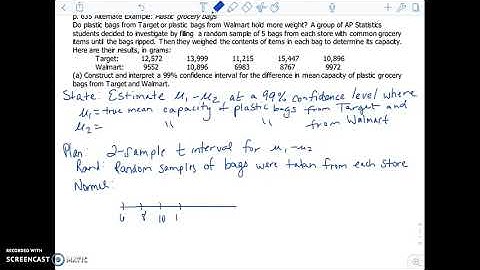 p. 635 Alternate Example: Plastic grocery bags
Do plastic bags from Target or plastic bags from Walmart hold more weight? A group of AP Statistics
students decided to investigate by filling a random sample of 5 bags from each store with common grocery
items until the bags ripped. Then they weighed the contents of items in each bag to determine its capacity.
Here are their results, in grams:
Target: 12,572 13,999 11,215 15,447 10,896
Walmart: 9552 10,896 6983 8767 9972
(a) Construct and interpret a 99% confidence interval for the difference in mean capacity of plastic grocery
bags from Target and Walmart.
State: Estimate μ₁-μ₂ at a 99% confidence level where
μ₁= true mean capacity of plastic bags from Target and
μ₂= " " from Walmart
Plan: 2-sample t interval for μ₁-μ₂
Rand: Random samples of bags were taken from each store
Normal:
6 8 10 1
RECORDED WITH
SCREENCAST MATIC